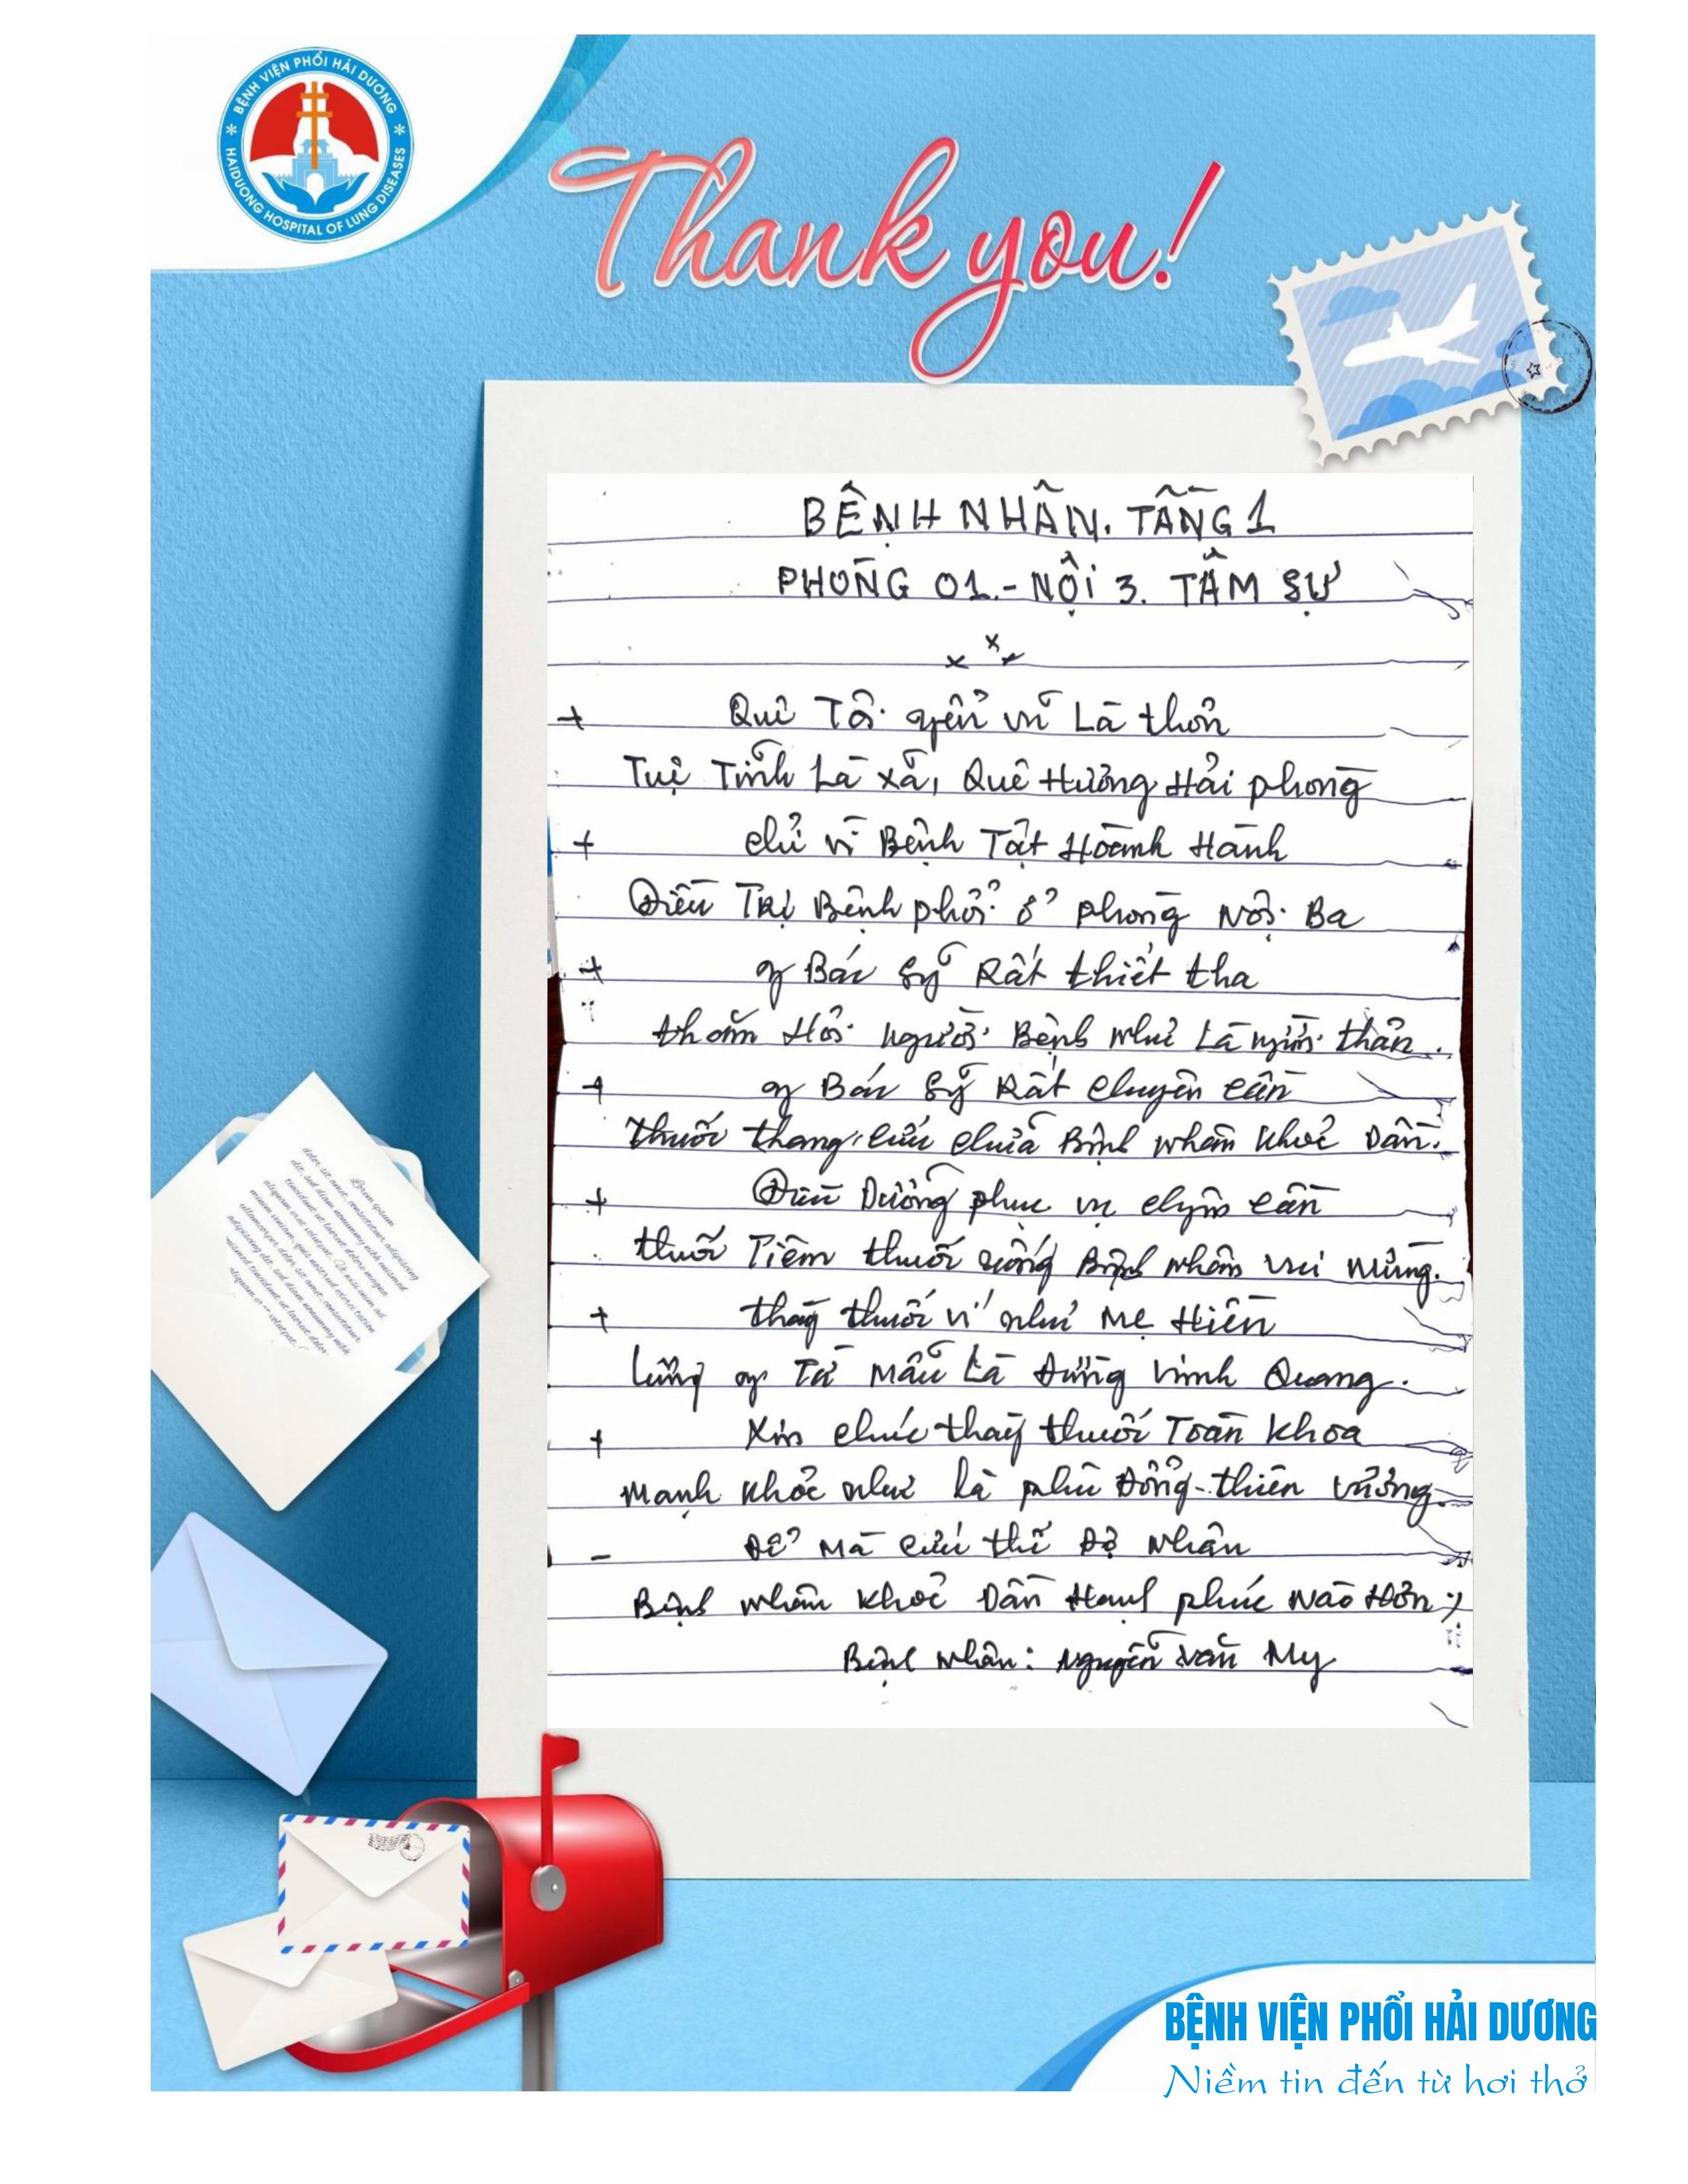 BỆNH VIỆN PHỔI HẢI DƯƠNG
HAIDUONG HOSPITAL OF LUNG DISEASES
Thank you!
BỆNH NHÂN. TẦNG 1
PHÒNG 01.- NỘI 3. TÂM SỰ
+ Quê Tôi yên vũ Là thôn
Tuệ Tĩnh Là xã, Quê Hương Hải phòng
+ chỉ vì Bệnh Tật Hoành Hành
Điều Trị Bệnh phổi ở phòng Nội Ba
+ y Bác sỹ Rất thiết tha
thăm Hỏi người Bệnh như Là người thân.
+ y Bác sỹ Rất chuyên cần
thuốc thang, cứu chữa Bệnh nhân khoẻ Dần.
+ Điều Dưỡng phục vụ chuyên cần
thuốc Tiêm thuốc uống Bệnh nhân vui mừng.
+ thầy thuốc ví như Mẹ Hiền
Lương y Từ Mẫu Là Đường Vinh Quang.
+ Xin chúc thầy thuốc Toàn khoa
Mạnh khỏe như là phù Đổng-thiên vương.
- Để Mà cứu thế Độ nhân
Bệnh nhân khoẻ Dần Hạnh phúc Nào Hơn
Bệnh nhân: Nguyễn Văn My
Lorem ipsum
BỆNH VIỆN PHỔI HẢI DƯƠNG
Niềm tin đến từ hơi thở